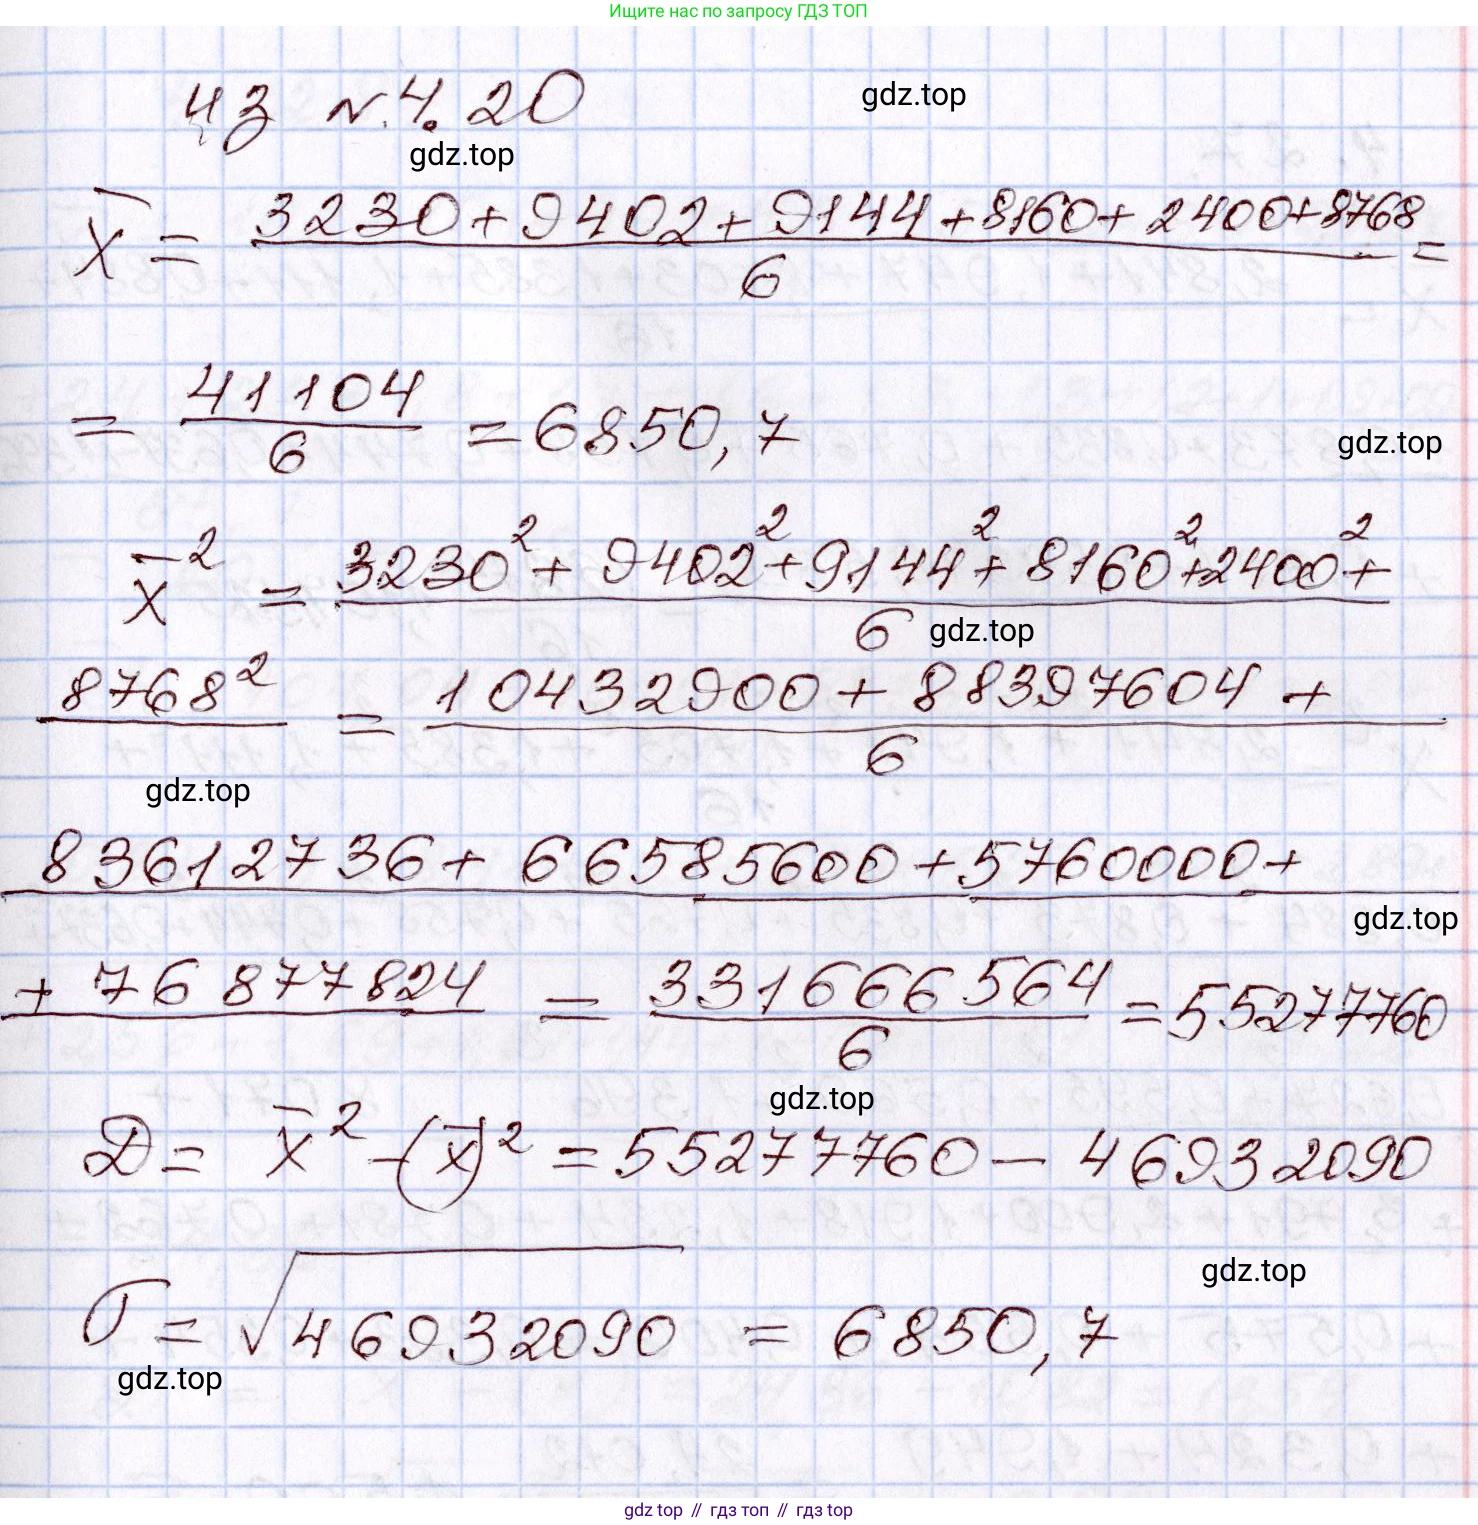 Ищите нас по запросу ГДЗ ТОП
gdz.top
ЦЗ N. 4.20
gdz.top
x̄ = (3230 + 9402 + 9144 + 8160 + 2400 + 8768)/6 =
= 41104/6 = 6850,7
gdz.top
x̄² = (3230² + 9402² + 9144² + 8160² + 2400² +)/6
gdz.top
8768² = (10432900 + 88397604 +)/6
gdz.top
83612736 + 66585600 + 5760000 +
gdz.top
+ 76877824 = 331666564/6 = 55277760
gdz.top
D = x̄² - (x̄)² = 55277760 - 46932090
gdz.top
σ = √46932090 = 6850,7
gdz.top
gdz top // гдз топ // гдз top